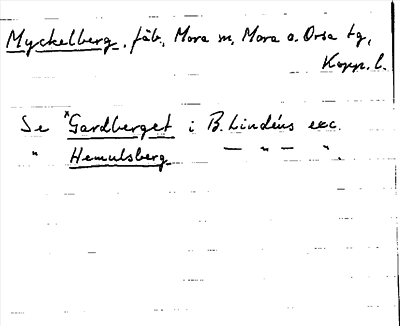 Myckelberg, fäb., Mora sn, Mora o. Orsa tg,
Kopp. l.
Se *Gardberget i B. Lindéns exc.
" Hemulsberg — " — "